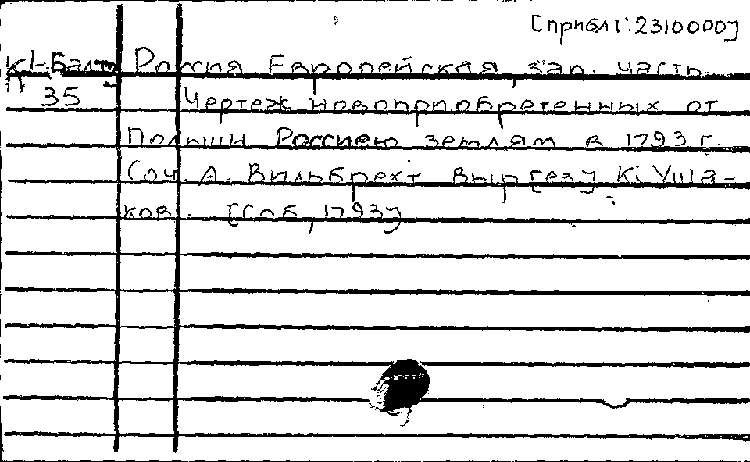 [прибл 1:2310000]
К 1-Балт Россия Европейская, зап. часть
35 Чертеж новоприобретенных от
Польши Россиею землям в 1793 г.
Соч. А. Вильбрехт Выр[езал] К. Уша-
ков. [Спб, 1793]